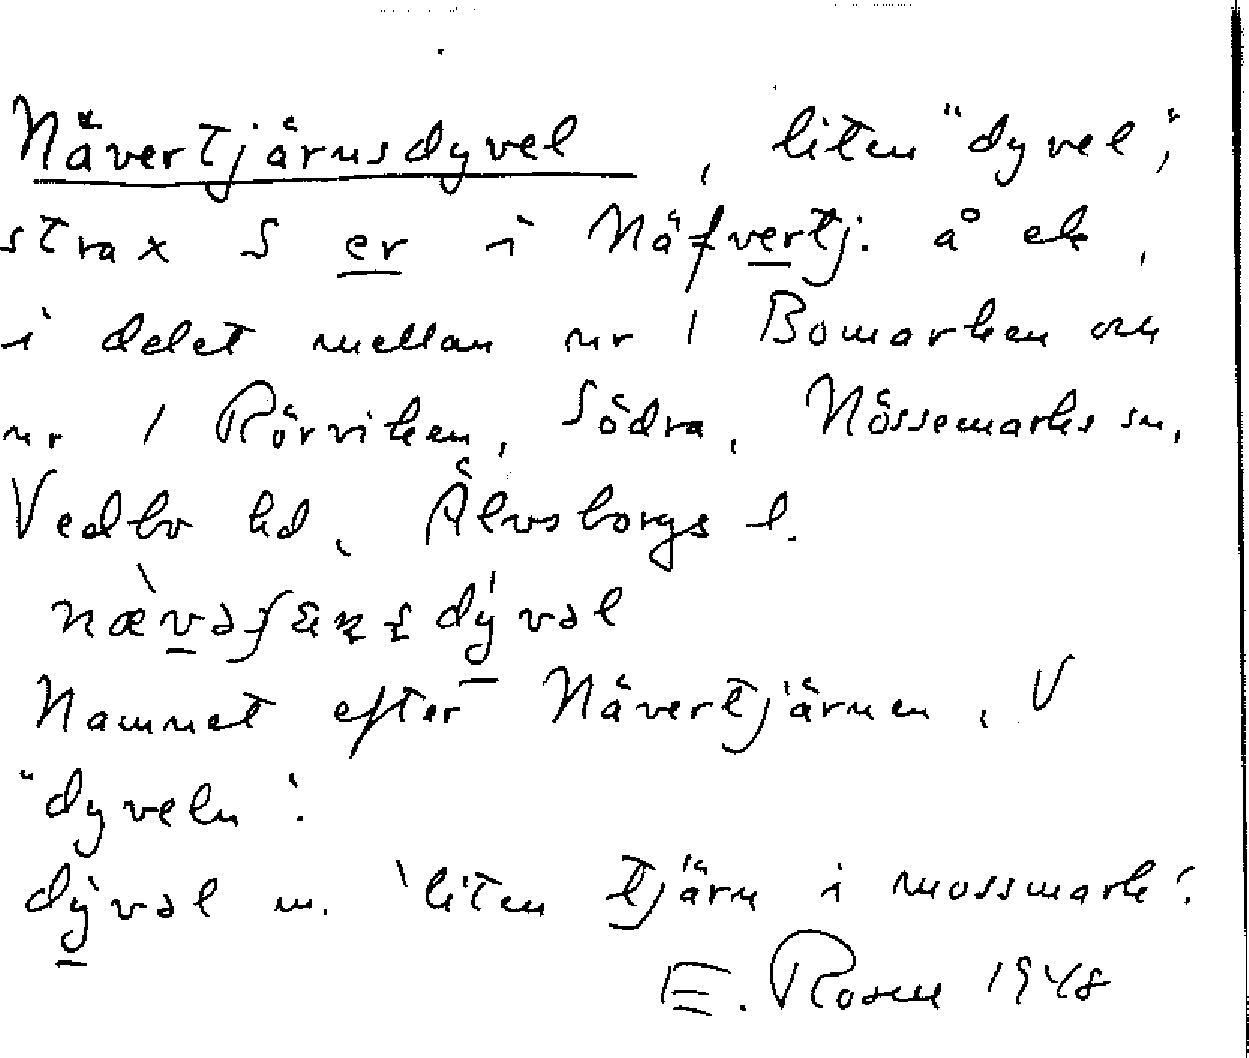 Nävertjärnsdyvel, liten "dyvel",
strax S er i Näfvertj. å ek,
i delet mellan nr 1 Bomarken och
nr 1 Rörviken, Södra, Nössemarks sn,
Vedbo hd, Älvsborgs l.
dý̱vəl
Namnet efter Nävertjärnen, V
"dyveln".
dý̱vəl m. 'liten tjärn i mossmark'.
E. Rosen 1948